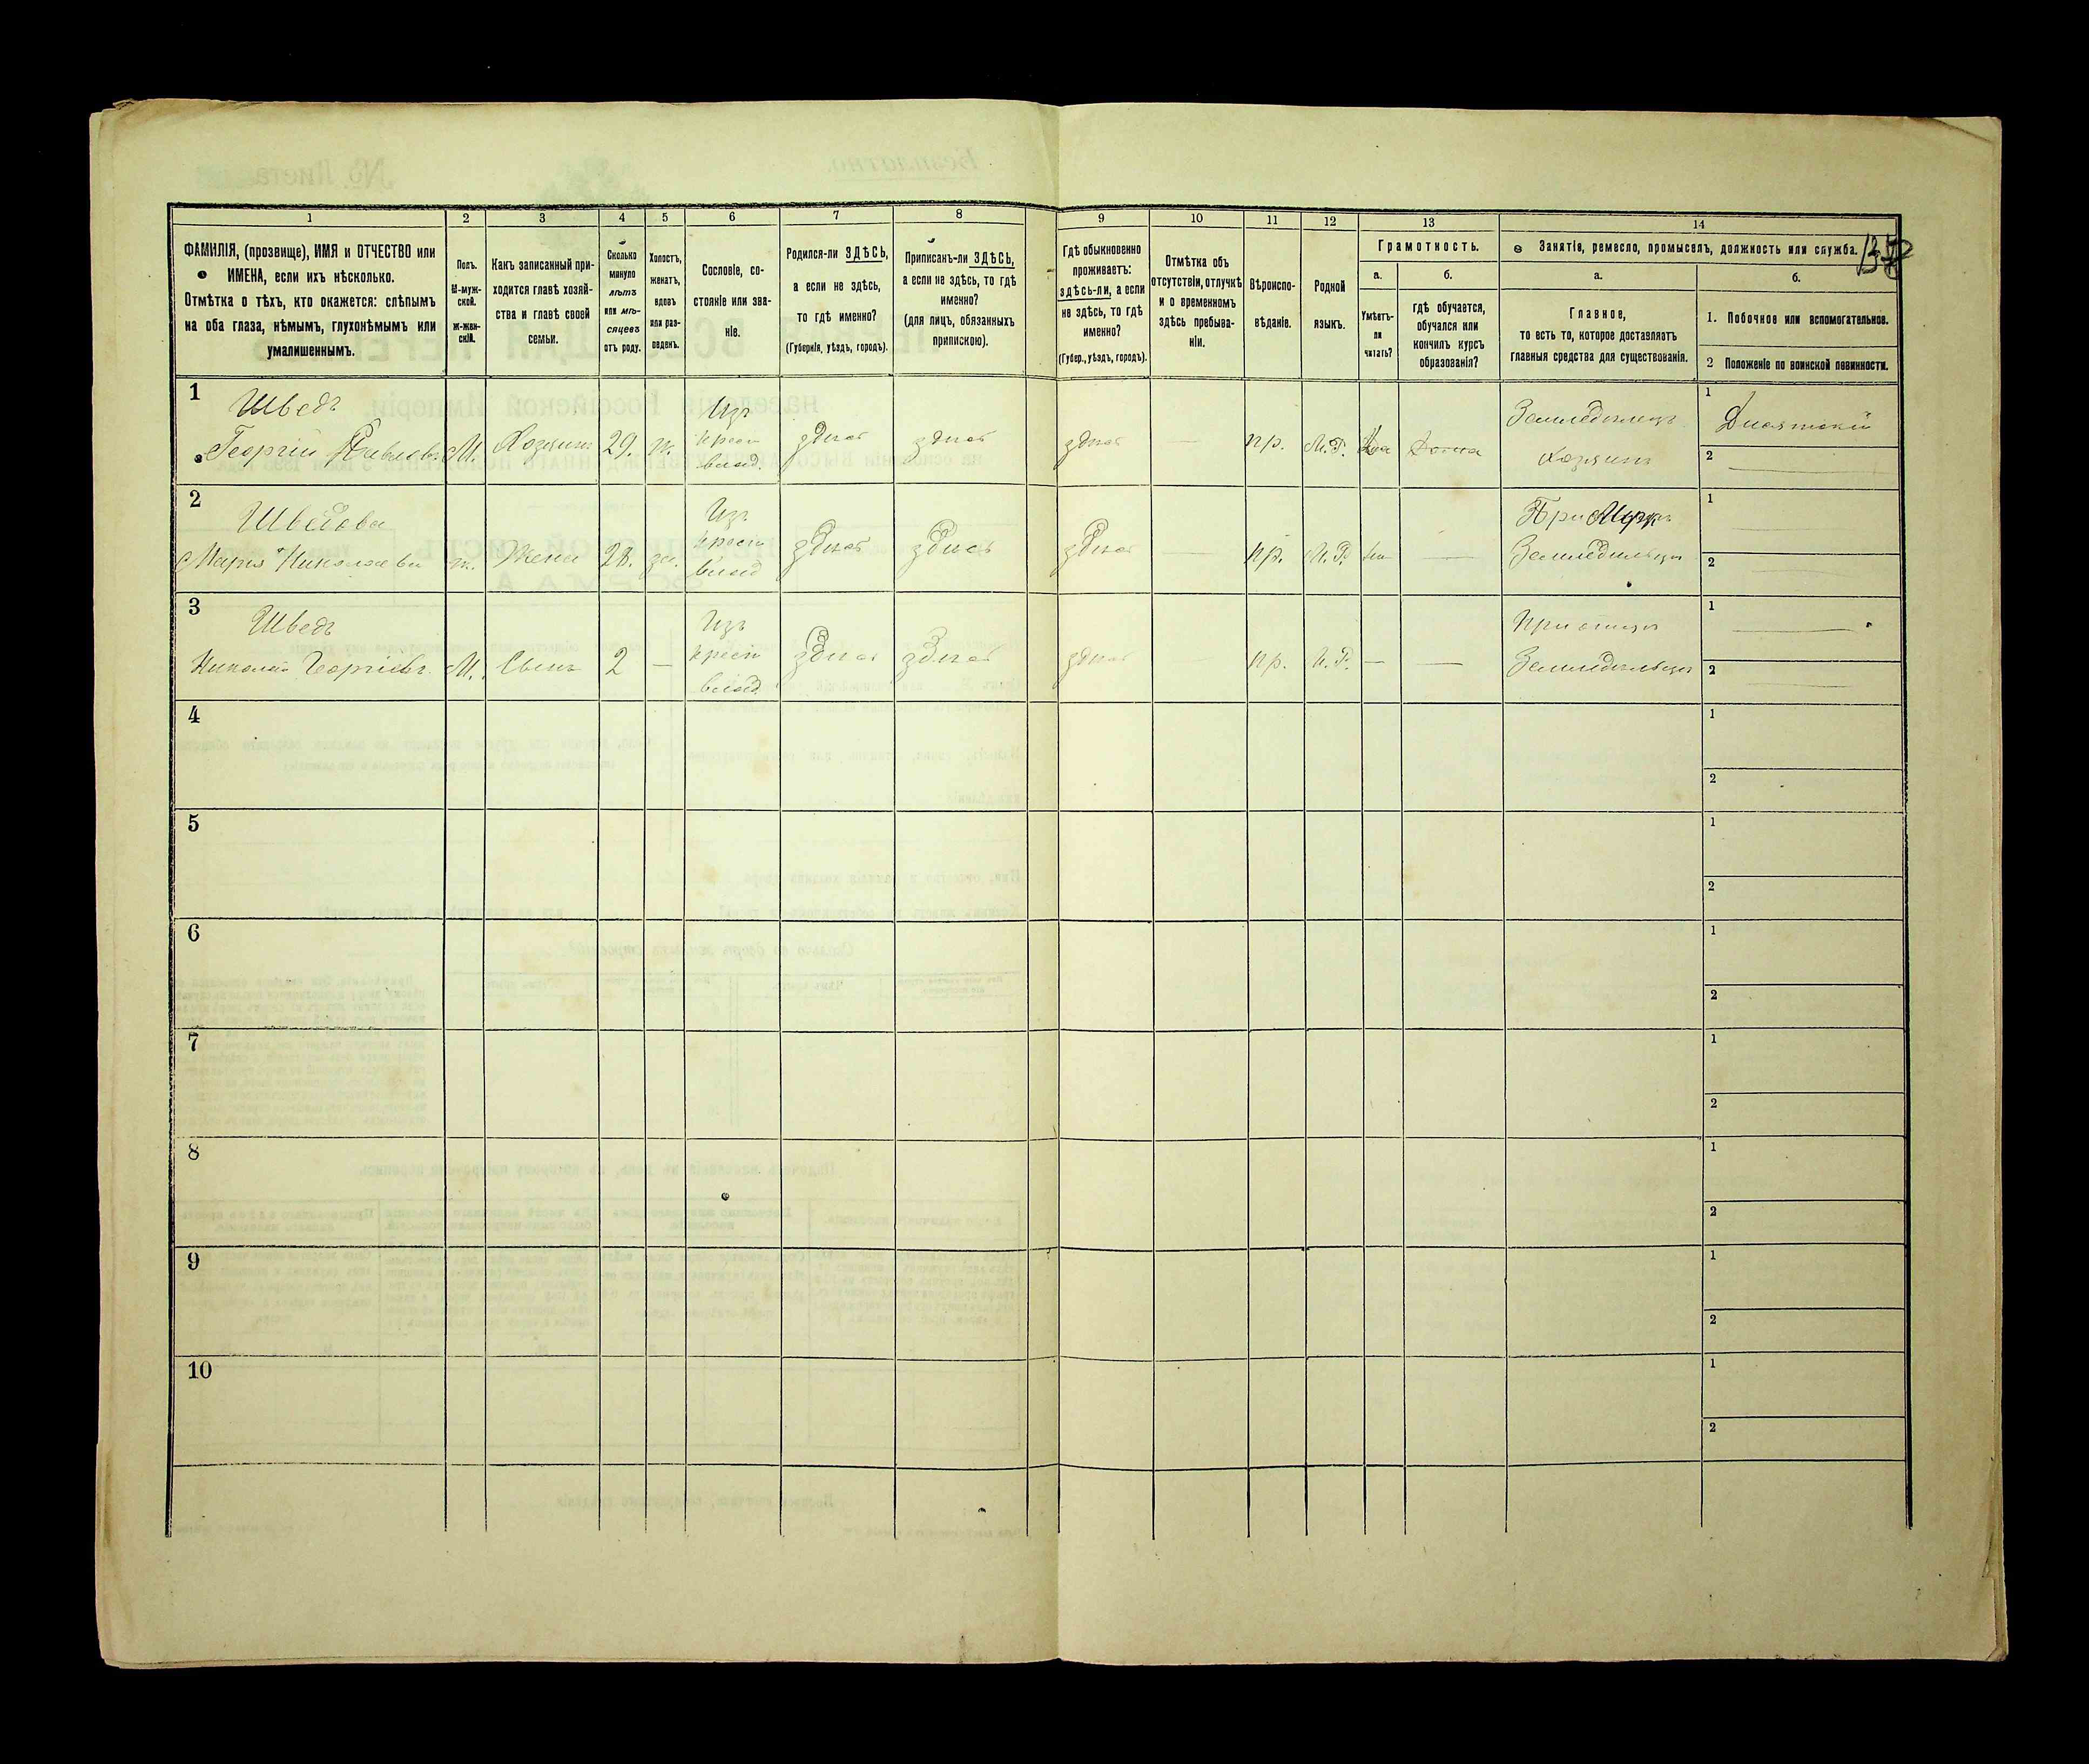 1
2
3
4
5
6
7
8
9
10
11
12
13
14
ФАМИЛІЯ, (прозвище), ИМЯ и ОТЧЕСТВО или
ИМЕНА, если ихъ нѣсколько.
Отмѣтка о тѣхъ, кто окажется: слѣпымъ
на оба глаза, нѣмымъ, глухонѣмымъ или
умалишеннымъ.
Полъ.
М-муж-
ской.
Ж-жен-
скій.
Какъ записанный при-
ходится главѣ хозяй-
ства и главѣ своей
семьи.
Сколько
минуло
лѣтъ
или мѣ-
сяцевъ
отъ роду.
Холостъ,
женатъ,
вдовъ
или раз-
веденъ.
Сословіе, со-
стояніе или зва-
ніе.
Родился-ли ЗДѢСЬ,
а если не здѣсь,
то гдѣ именно?
(Губернія, уѣздъ, городъ).
Приписанъ-ли ЗДѢСЬ,
а если не здѣсь, то гдѣ
именно?
(для лицъ, обязанныхъ
припискою).
Гдѣ обыкновенно
проживаетъ:
здѣсь-ли, а если
не здѣсь, то гдѣ
именно?
(Губер., уѣздъ, городъ).
Отмѣтка объ
отсутствіи, отлучкѣ
и о временномъ
здѣсь пребыва-
ніи.
Вѣроиспо-
вѣданіе.
Родной
языкъ.
Грамотность.
а.
Умѣетъ-
ли
читать?
б.
гдѣ обучается,
обучался или
кончилъ курсъ
образованія?
Занятіе, ремесло, промыселъ, должность или служба.
а.
Главное,
то есть то, которое доставляетъ
главныя средства для существованія.
б.
1. Побочное или вспомогательное.
2 Положеніе по воинской повинности.
1
Шведъ
Георгій Павловъ
М.
Хозяинъ
29.
ж.
Изъ
крест
влад.
здѣсь
здѣсь
здѣсь
—
пр.
М.Р.
да
дома
Земледѣлецъ
хозяинъ
1
Десятскій
2
2
Шведова
Марія Николаева
ж.
Жена
28.
за.
Изъ
крест
влад
здѣсь
здѣсь
здѣсь
—
пр.
М.Р.
—
При Мужѣ
Земледѣлецъ
1
2
3
Шведъ
Николай Георгіевъ.
М.
Сынъ
2
—
Изъ
крест
влад.
здѣсь
здѣсь
здѣсь
—
пр.
М.Р.
—
—
При отцѣ
Земледѣлецъ
1
2
4
1
2
5
1
2
6
1
2
7
1
2
8
1
2
9
1
2
10
1
2